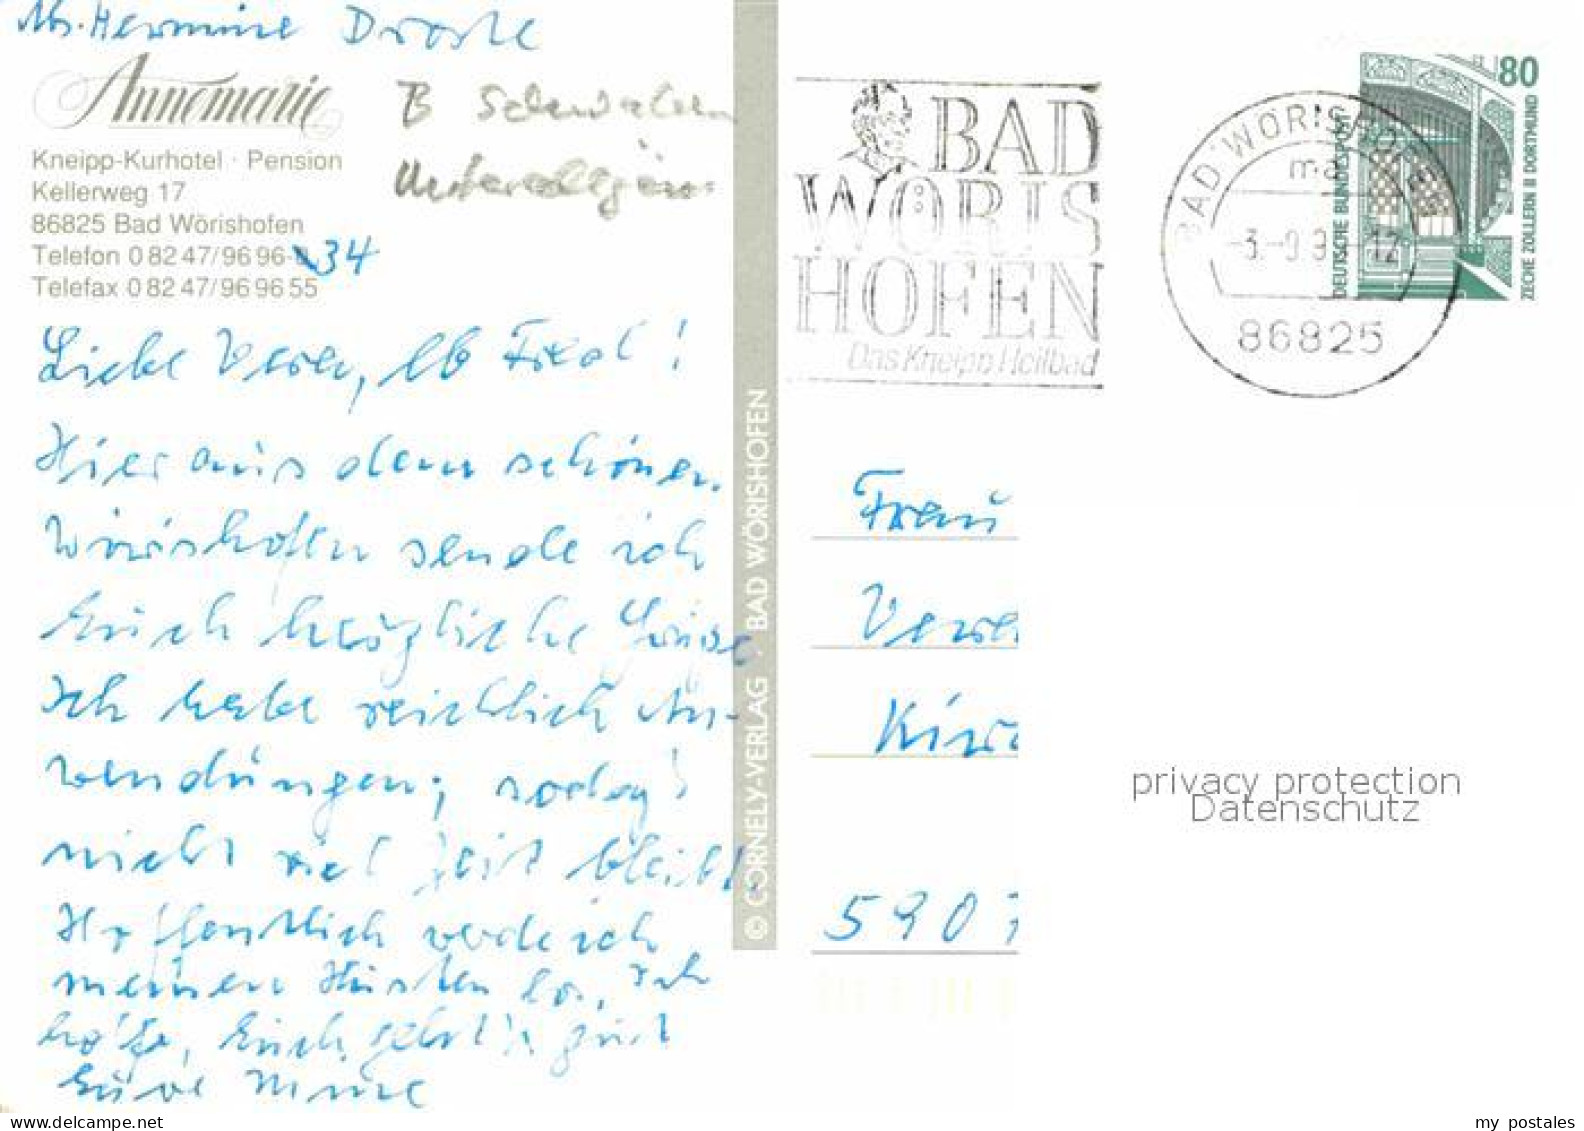 Abs. Hermine Droste
Annemarie
Kneipp-Kurhotel · Pension
Kellerweg 17
86825 Bad Wörishofen
Telefon 0 82 47/96 96-0 34
Telefax 0 82 47/96 96 55
Liebe Veren, lb Fred!
Hier aus dem schönen
Wörishofen sende ich
Euch herzliche Grüße
Ich habe reichlich An-
wendungen; sodaß
nicht viel Zeit bleibt.
Hoffentlich werde ich
meinen Husten los, ich
hoffe, Euch geht's gut
Eure Mine
© CORNELY-VERLAG · BAD WÖRISHOFEN
BAD
WÖRIS
HOFEN
Das Kneipp Heilbad
BAD WÖRISHOFEN
ma
-3.-9.9 -12
86825
80
DEUTSCHE BUNDESPOST
ZECHE ZOLLERN II DORTMUND
Frau
Veren
5907
privacy protection
Datenschutz
my postales